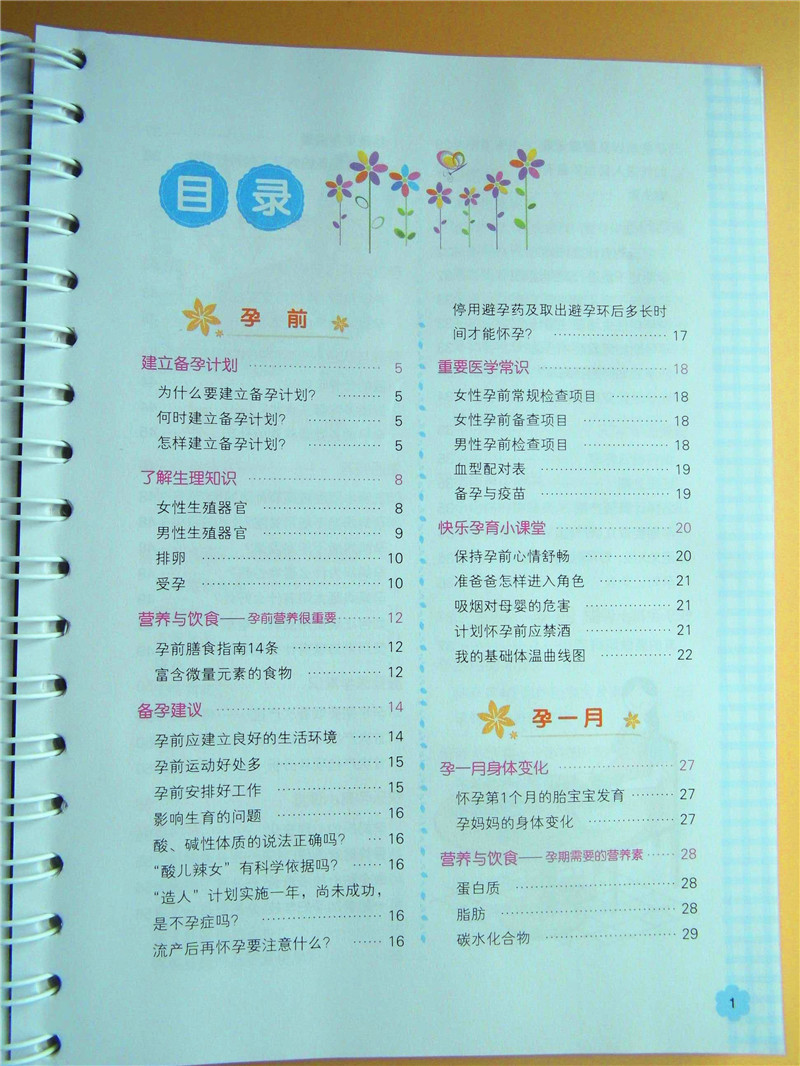 目录
孕前
建立备孕计划 5
为什么要建立备孕计划? 5
何时建立备孕计划? 5
怎样建立备孕计划? 5
了解生理知识 8
女性生殖器官 8
男性生殖器官 9
排卵 10
受孕 10
营养与饮食——孕前营养很重要 12
孕前膳食指南14条 12
富含微量元素的食物 12
备孕建议 14
孕前应建立良好的生活环境 14
孕前运动好处多 15
孕前安排好工作 15
影响生育的问题 16
酸、碱性体质的说法正确吗? 16
“酸儿辣女”有科学依据吗? 16
“造人”计划实施一年,尚未成功,
是不孕症吗? 16
流产后再怀孕要注意什么? 16
停用避孕药及取出避孕环后多长时
间才能怀孕? 17
重要医学常识 18
女性孕前常规检查项目 18
女性孕前备查项目 18
男性孕前检查项目 18
血型配对表 19
备孕与疫苗 19
快乐孕育小课堂 20
保持孕前心情舒畅 20
准爸爸怎样进入角色 21
吸烟对母婴的危害 21
计划怀孕前应禁酒 21
我的基础体温曲线图 22
孕一月
孕一月身体变化 27
怀孕第1个月的胎宝宝发育 27
孕妈妈的身体变化 27
营养与饮食——孕期需要的营养素 28
蛋白质 28
脂肪 28
碳水化合物 29
1